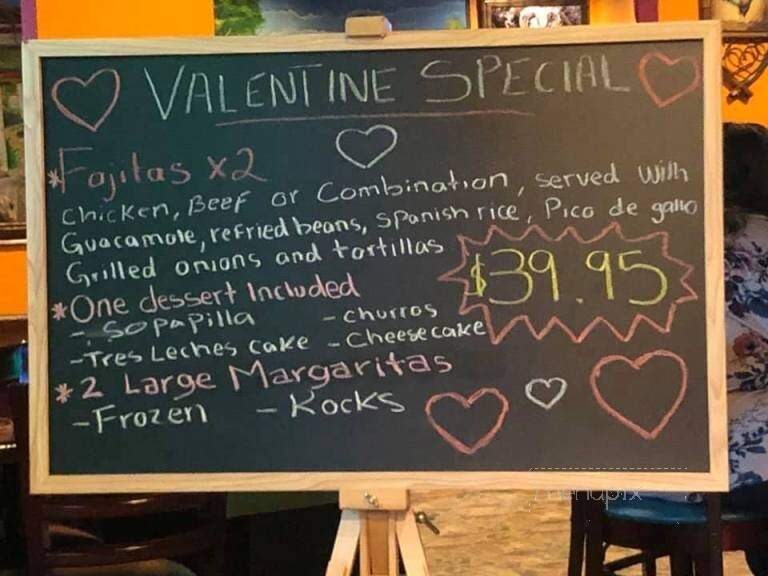 VALENTINE SPECIAL
*Fajitas x2
Chicken, Beef or Combination, served with
Guacamole, refried beans, Spanish rice, Pico de gallo
Grilled onions and tortillas
$39.95
*One dessert Included
- Sopapilla - churros
- Tres Leches cake - Cheesecake
*2 Large Margaritas
- Frozen - Rocks
menupix